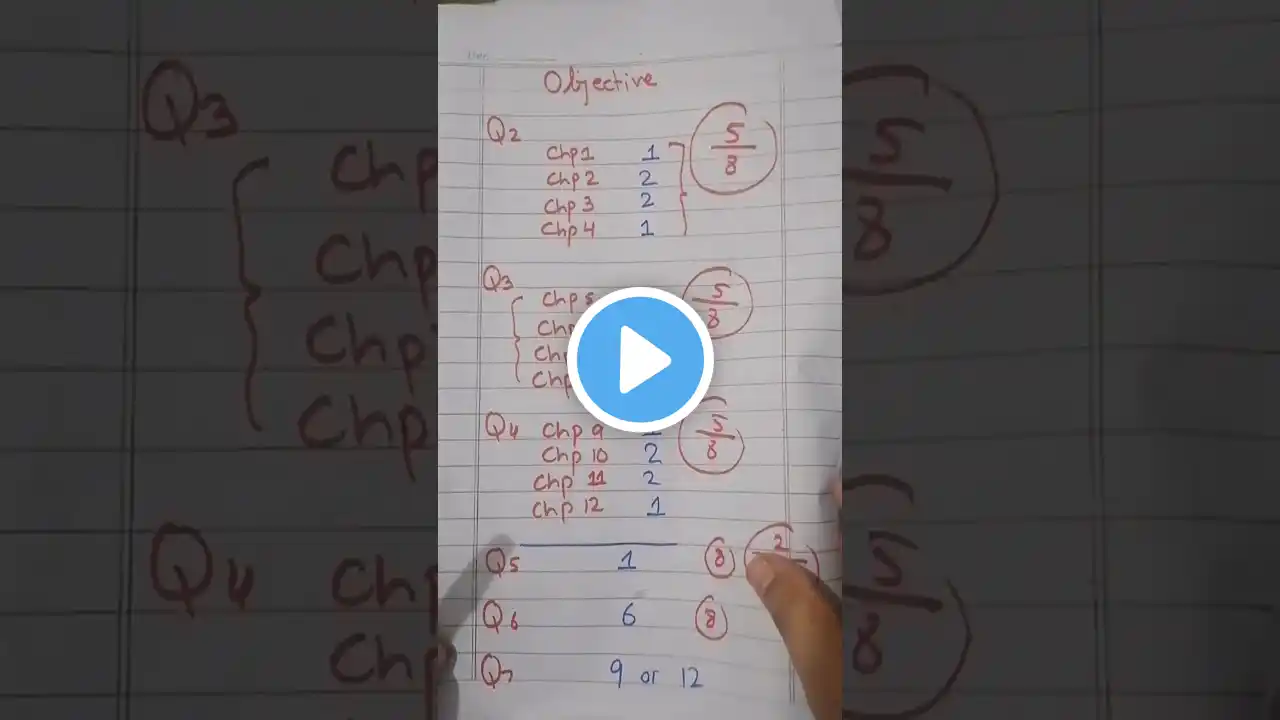 Objective
Q2
Chp 1 1 5/8
Chp 2 2
Chp 3 2
Chp 4 1
Q3
Chp 5 5/8
Chp
Chp
Chp
Q4 Chp 9 5/8
Chp 10 2
Chp 11 2
Chp 12 1
Q5 1 8 2
Q6 6 8
Q7 9 or 12